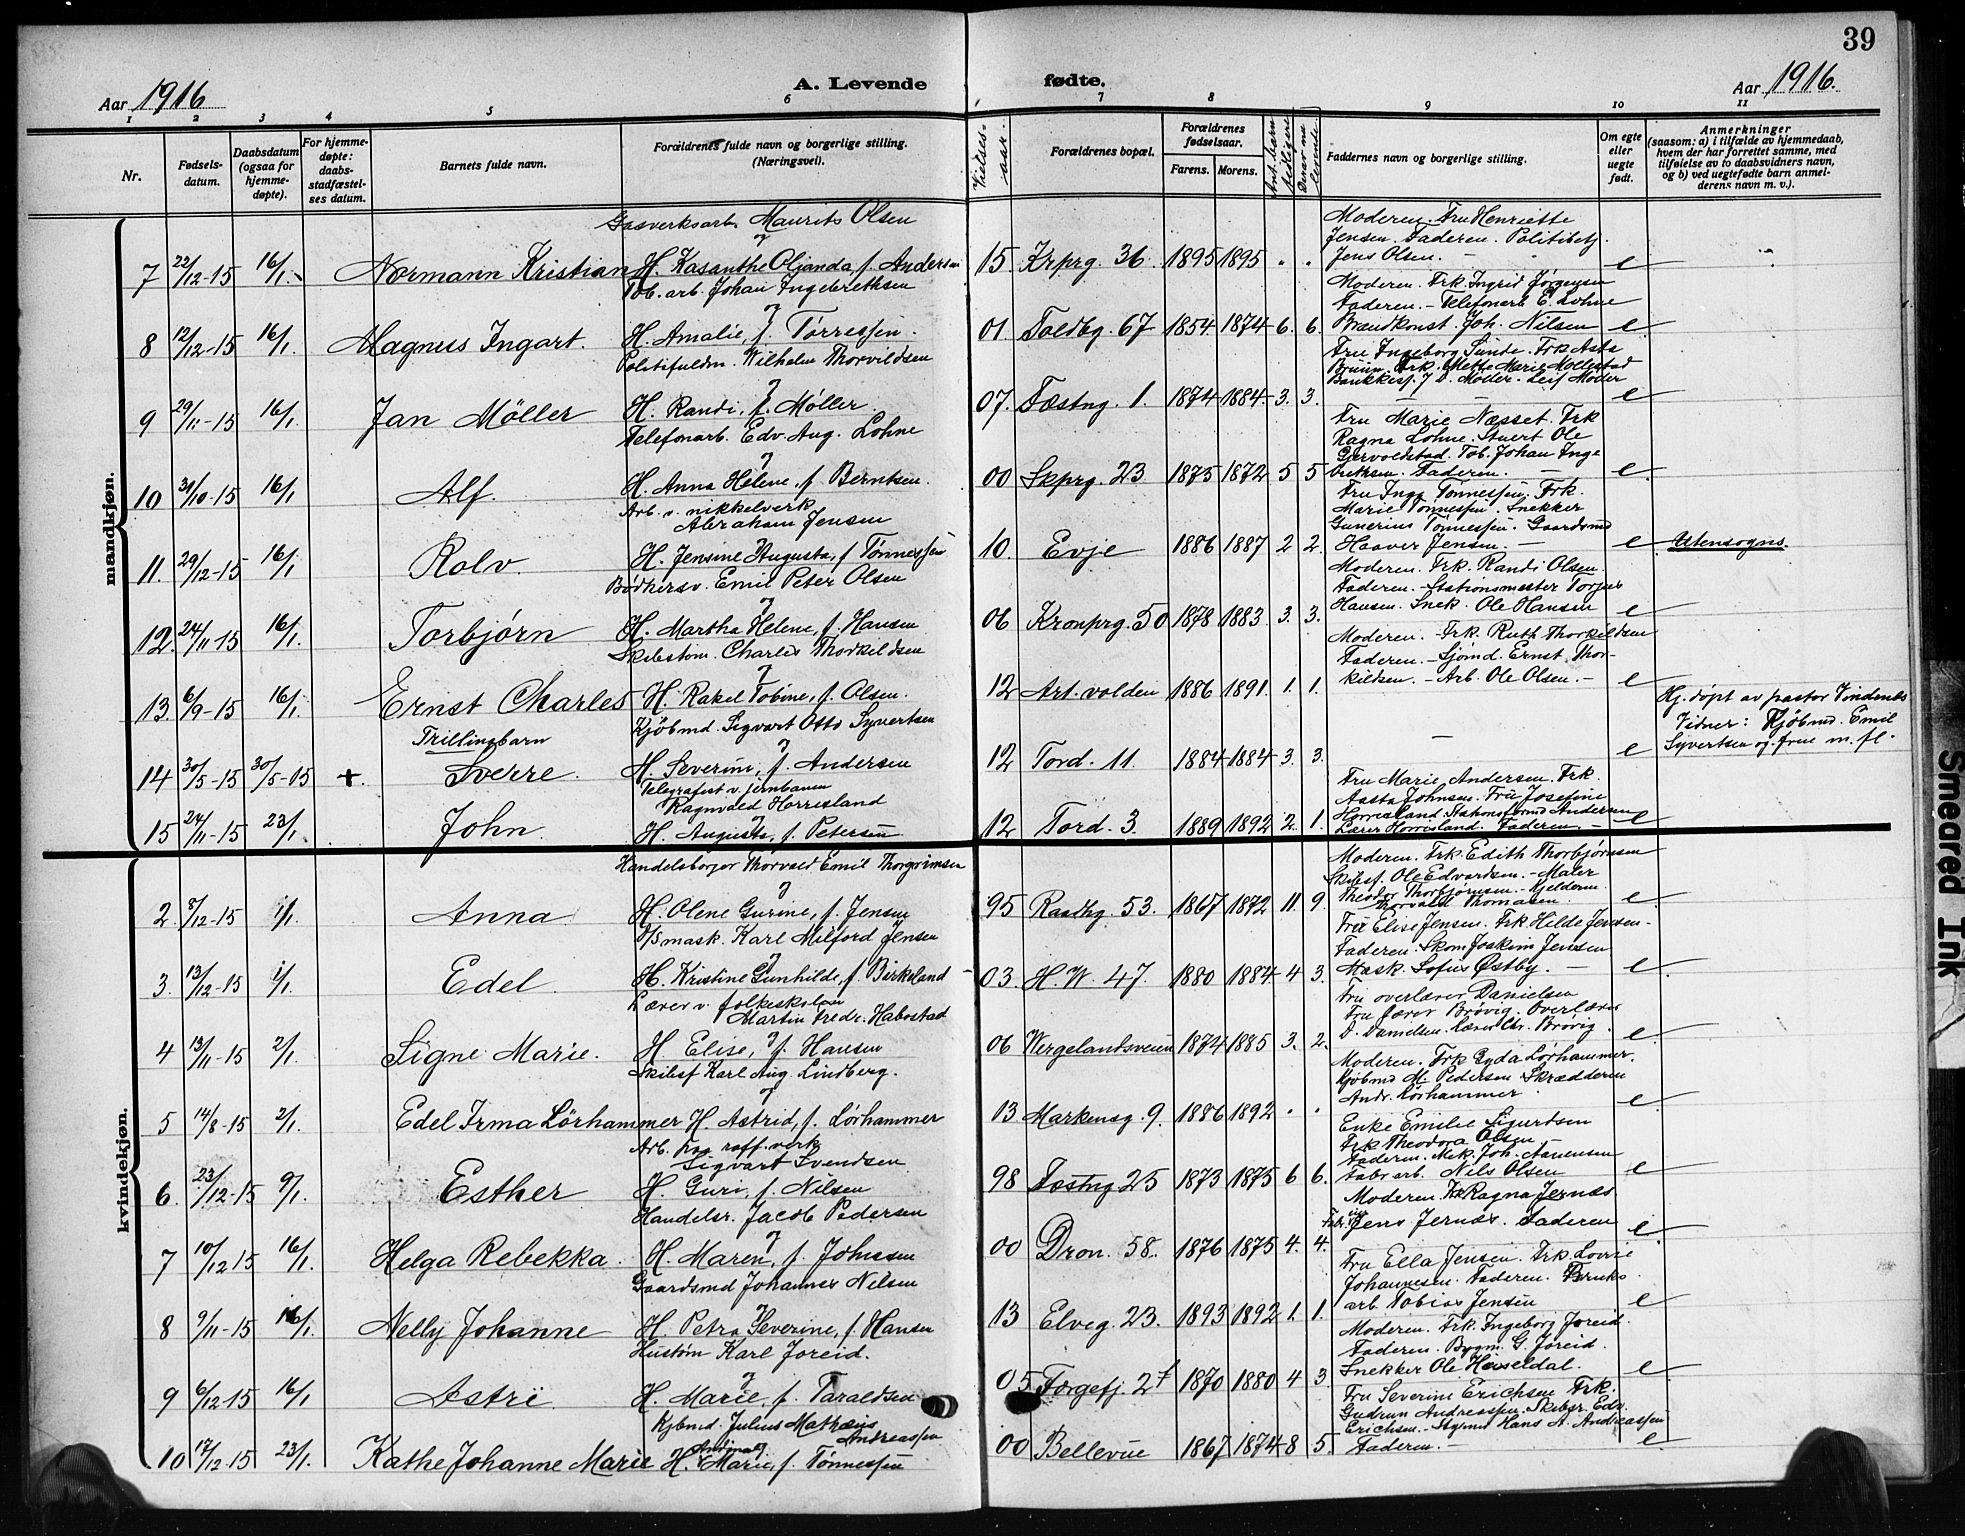 39
Aar 1916
A. Levende
fødte.
Aar 1916.
1 2 3 4 5 6 7 8 9 10 11
Nr.
Fødsels-
datum.
Daabsdatum
(ogsaa for
hjemme-
døpte).
For hjemme-
døpte:
daabs-
stadfæstel-
ses datum.
Barnets fulde navn.
Forældrenes fulde navn og borgerlige stilling.
(Næringsvei).
Vielses-
aar.
Forældrenes bopæl.
Forældrenes
fødselsaar.
Farens. Morens.
Faddernes navn og borgerlige stilling.
Om egte
eller
uegte
født.
Anmerkninger
(saasom: a) i tilfælde av hjemmedaab,
hvem der har forrettet samme, med
tilføielse av to daabsvidners navn,
og b) ved uegtefødte barn anmel-
derens navn m. v.).
mandkjøn.
Gasverksarb. Maurits Olsen
og
7 22/12-15 16/1 Normann Kristian H. Kasanthe Oljanda, f. Andersen 15 Krprg. 36 1895 1895 " "
Moderen. Fru Henriette
Jensen. Faderen. Politibetj.
Jens Olsen. e
Tob. arb. Johan Ingebrethsen
og
8 12/12-15 16/1 Magnus Ingart. H. Amalie, f. Tørressen. 01 Toldbg. 67 1854 1874 6. 6.
Moderen. Frk. Ingrid Jørgensen
Faderen. - Telefonarb E. Lohne
Brandkonst. Joh. Nilsen e
Politifuldm. Wilhelm Thorvildsen
og
9 29/11-15 16/1 Jan Möller H. Randi, f. Møller 07. Fæstng. 1. 1874 1884 3. 3.
Fru Ingeborg Sunde. Frk Asta
Bruun. Frk. Mette Marie Mollestad
Bankkass. J. D. Møller. Leif Møller
e
Telefonarb. Edv. Aug. Lohne
og
10 31/10-15 16/1 Alf. H. Anna Helene, f. Berntsen. 00 Skprg. 23 1875 1872 5 5
Fru Marie Næsset. Frk
Ragna Lohne. Stuert Ole
Gjervoldstad. Tob. Johan Inge
brektsen. Faderen. e
Arb. v. nikkelverk
Abraham Jensen
11. 29/12-15 16/1 Rolv. H. Jensine Augusta, f. Tønnessen 10. Evje 1886 1887 2 2.
Fru Inga Tønnessen, Frk.
Marie Tønnessen. Snekker
Gunerius Tønnessen. Gaardsmd
Haaver Jensen. e Utensogns.
Bødkersv. Emil Peter Olsen
og
12. 24/11-15 16/1 Torbjørn H. Martha Helene, f. Hansen 06 Kronprg. 50 1878 1883 3. 3.
Moderen. Frk. Randi Olsen.
Faderen. - Stationsmester Torjus
Hansen. Snek. Ole Hansen e
Skibstøm. Charles Thorkildsen
og
13. 6/9-15 16/1 Ernst Charles H. Rakel Tobine, f. Olsen. 12 Art. volden 1886 1891. 1. 1.
Moderen. - Frk. Ruth Thorkildsen
Faderen. - Sjømd. Ernst Thor-
kildsen. - Arb. Ole Olsen. - e
Trillingbarn
Kjöbmd. Sigvart Otto Syvertsen
og
14 30/5-15 30/5-05 +. Sverre. H. Severine, f. Andersen 12 Tord. 11. 1884 1884 3. 3. e
Hj. døpt av pastor Vindenes
Vidner: Kjøbmd. Emil
Syvertsen og frue m. fl.
Telegrafist v. jernbanen
Ragnvald Horrisland
og
15 24/11-15 23/1. John. H. Augusta, f. Petersen 12 Tord. 3. 1889 1892 2. 1.
Fru Marie Andersen. Frk.
Aasta Johnsen. Fru Josefine
Horrisland. Stationsformd Andersen
Lærer Horrisland. Faderen. e
kvindekjøn.
Handelsborger Thorvald Emil Thorgrimsen
og
2. 8/12-15 1/1 Anna H. Olene Gurine, f. Jensen 95 Raadhg. 53. 1867 1872 11. 9.
Moderen. Frk. Edith Thorbjørnsen
Skibsf. Ole Edvardsen. - Maler
Theodor Thorbjørnsen. -
Thorvald Thomasen. e
D/S mask. Karl Milford Jensen
og
3. 13/12-15 1/1. Edel. H. Kristine Gunhilde, f. Birkeland 03. H. W. 47. 1880 1884 4 3.
Fru Elise Jensen. Frk Hilde Jensen.
Faderen. Skom Joakim Jensen
Mask. Sofus Østby. - e
Lærer v. folkeskolen
Martin Fredr. Habostad
og
4 13/11-15 2/1 Signe Marie. H. Elise, f. Hansen 06 Wergelandsveien 1874 1885 3. 2.
Fru overlærer Danielsen
Fru lærer Brøvig. Overlærer
D. Danielsen. Chr. Brøvig. e
Skibsf Karl Aug. Lindberg.
og
5 14/8-15 2/1. Edel Irma Lörhammer H. Astrid, f. Lörhammer 13 Markensg. 9. 1886 1892 " "
Moderen. Frk Gyda Lørhammer.
Kjøbmd M. Pedersen Skrædderm
Andr. Lørhammer. e
Arb. paa raff. verk
Sigvart Svendsen
6. 23/12-15 9/1. Esther H. Guri, f. Nilsen 98 Fæstng 25 1873 1875 6 6.
Enke Emilie Sigurdsen
Frk Theodora Olsen
Faderen. Mek. Joh. Aanensen
Fabr arb. Nils Olsen e
Handelsr. Jacob Pedersen
og
7 10/12 15 16/1. Helga Rebekka. H. Maren, f. Johnsen 00 Dron. 58. 1876 1875 4. 4.
Moderen. Frk Ragna Jernæs
Jens Jernæs. Faderen e
Gaardsmd Johannes Nilsen
8 9/11-15 16/1. Nelly Johanne H. Petra Severine, f. Hansen 13 Elveg. 23. 1893 1892 1. 1.
Fru Ella Jensen. Frk Lovise
Johannesen. Faderen. Bruks.
arb. Tobias Jensen e
Hustøm Karl Joreid.
og
9 6/12-15 16/1 Astri H. Marie, f. Taraldsen 05 Torgefj. 2f 1870 1880 4 3
Moderen. Frk. Ingeborg Joreid.
Faderen. Bygm. G. Joreid.
Snekker Ole Heiseldal. e
Kjbmd. Julius Mathæus
Andreassen
10 17/12-15 23/1. Kathe Johanne Marie H. Andrea Marie, f. Tønnessen 00 Bellevue 1867 1874 8 5
Fru Severine Erichsen Frk.
Gudrun Andreassen. Skibsr. Edv.
Erichsen. - Styrmd Hans A. Andreassen
Faderen. - e
Smeared Ink